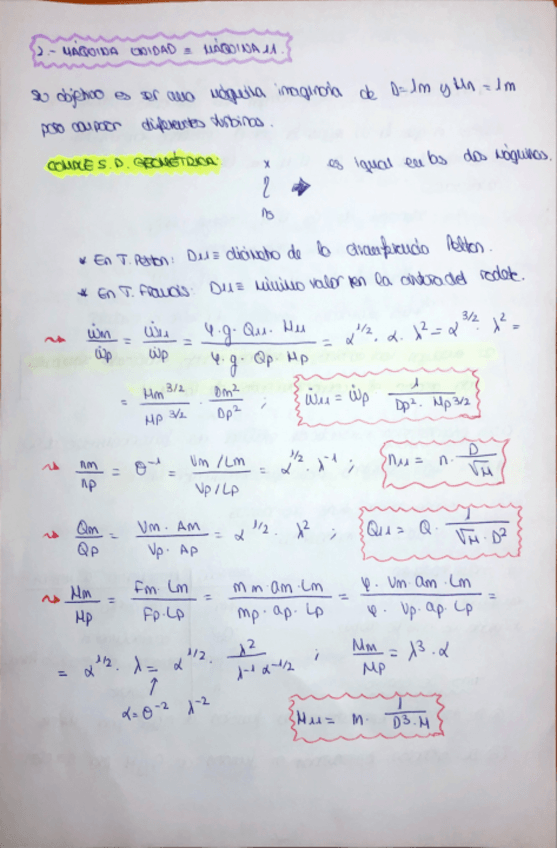 2.- MÁQUINA UNIDAD = MÁQUINA 11.
Su objetivo es ser una máquina imaginaria de D=1m y Hn=1m
para comparar diferentes turbinas.
CUMPLE S. D. GEOMÉTRICA: x es igual en las dos máquinas.
* En T. Pelton: D11 ≡ diámetro de la circunferencia Pelton.
* En T. Francis: D11 ≡ mínimo valor en la cintura del rodete.
Ẇm/Ẇp = Ẇ11/Ẇp = φ·g·Q11·H11 / φ·g·Qp·Hp = α^1/2 · α · λ^2 = α^3/2 · λ^2 =
= Hm^3/2 / Hp^3/2 · Dm^2 / Dp^2 ; Ẇ11 = Ẇp 1 / Dp^2 · Hp^3/2
nm/np = θ^-1 = Vm/Lm / Vp/Lp = α^1/2 · λ^-1 ; n11 = n · D/√H
Qm/Qp = Vm·Am / Vp·Ap = α^1/2 · λ^2 ; Q11 = Q · 1/√H·D^2
Mm/Mp = Fm·Lm / Fp·Lp = mm·am·Lm / mp·ap·Lp = φ·Vm·am·Lm / φ·Vp·ap·Lp =
= α^1/2 · λ = α^1/2 · λ^2 / λ^-1 α^-1/2 ; Mm/Mp = λ^3 · α
↑
α=θ^-2 λ^-2
M11 = M · 1/D^3·H